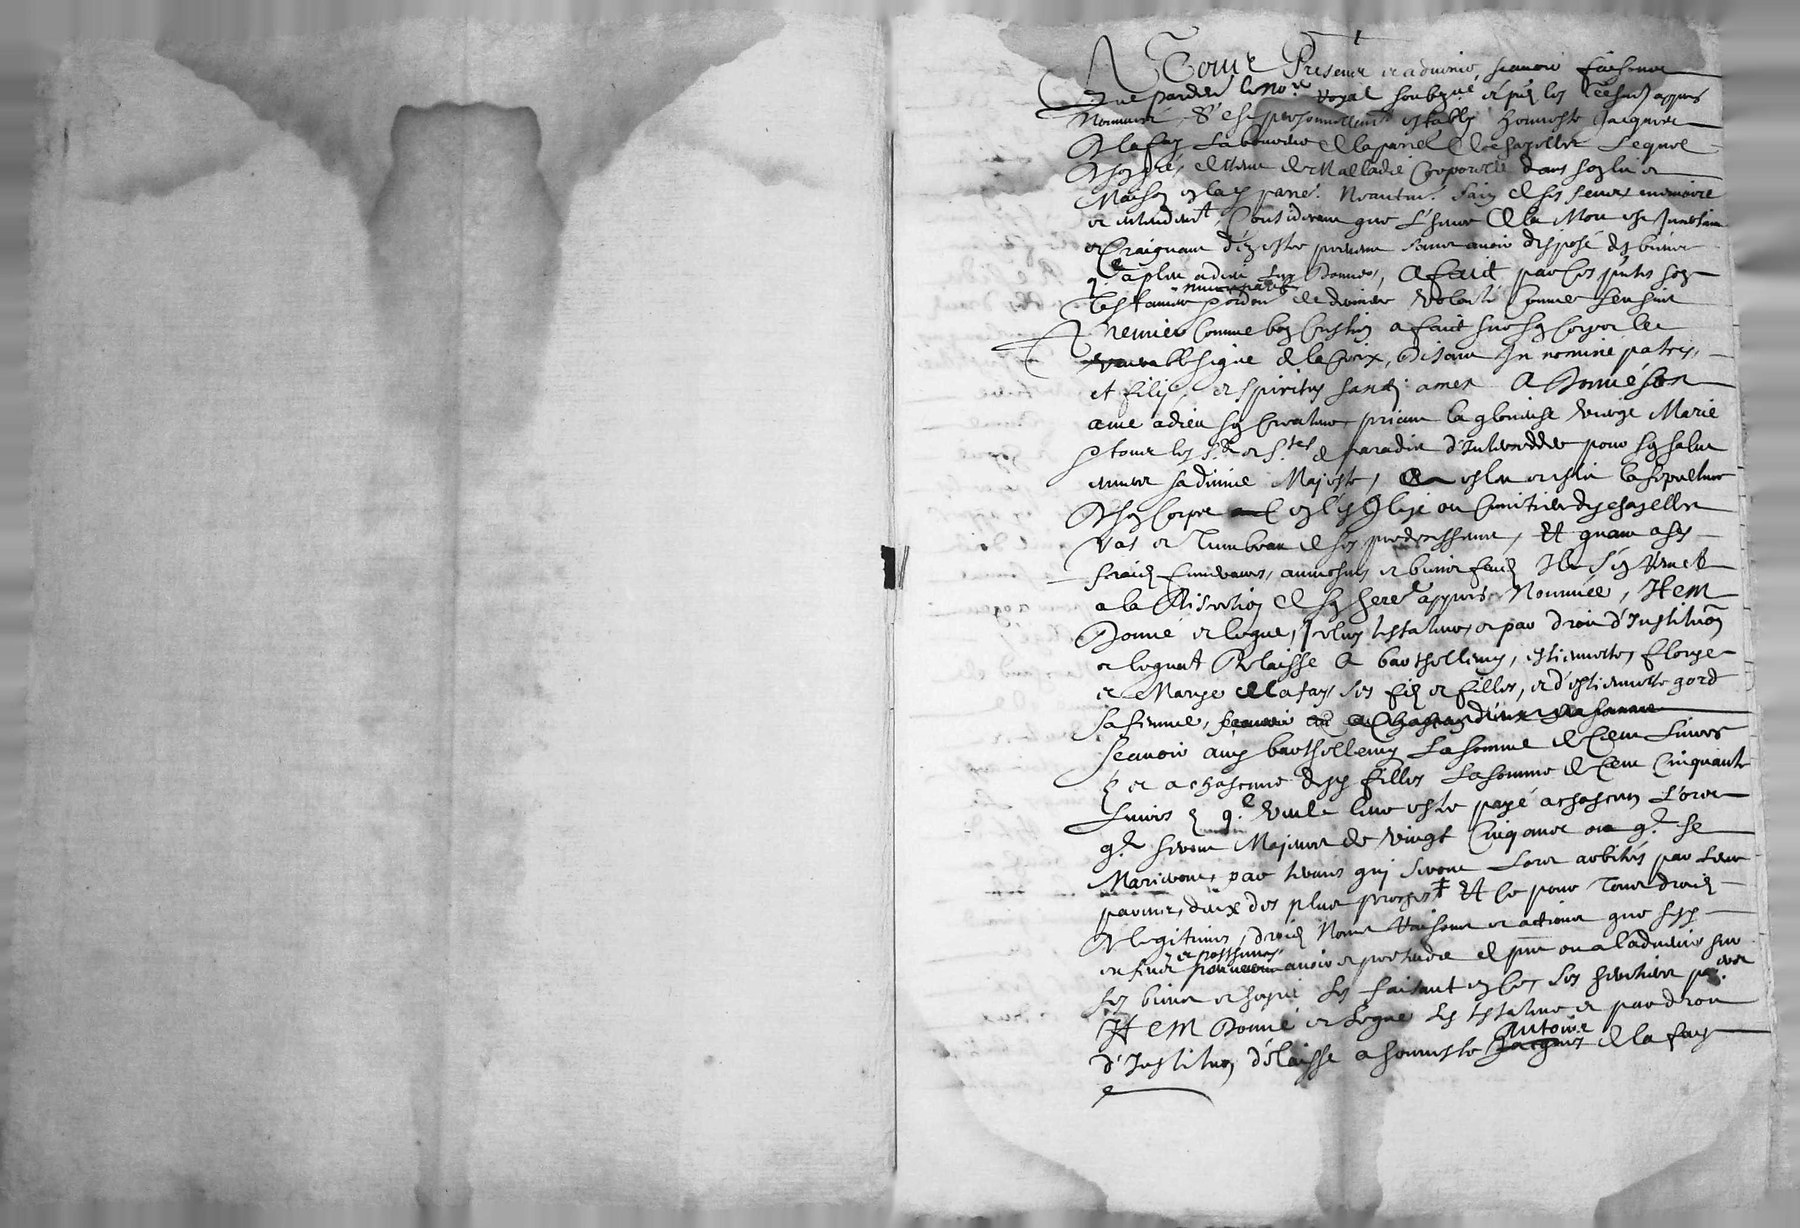 A Tous Presens et advenir, scavoir faisons
que pardevt le no.re royal soubzné et pnts les tesmoins apprès
Nommés, S'est personnellement estably honneste Jacques
Delafay Laboureur de la parroisse de chazelles Lequel
de son gré, detenu de Malladie Corporelle dans son lit et
Maison en lad parre. Neantm. sain de ses sens memoire
et entendemt, Considerant que L'heure de la Mort est Incertaine
et Craignant d'en estre prevenu sans avoir disposé des biens
q.l a pleu a dieu Luy Donner, a faict par ces pntes son
Testament nuncupatif et derniere volonté Comme s'ensuit
Premier Comme bon Crestien a faict sur son Corps le
venerable signe de la Croix, Disant In nomine patris,
et filij, et spiritus sancti amen A Donné son
ame a dieu son Createur priant la glorieuse vierge Marie
et tous les S.ts et S.tes de paradis d'Interceddet pour son salut
envers sa divine Majesté, a eslu et eslit la sepulture
de son Corps en l'Eglise ou Cimitiere de chazelles
vas et Tumbeau de ses predecesseurs, Et quant a ses
fraiz funeraires, aumosnes et bienfaictz Il s'en remet
a la Discretion de son here.e apprès Nommée, Item
Donne et legue, led testateur, et par droit d'Institution
et leguat Delaisse a barthellemy, estiennette, flouze
et Marye delafay ses filz et filles, et d'estiennette gord
sa femme,
scavoir aud barthellemy La somme de Cent Livres
et a chascune desd filles La somme de Cent Cinquante
Livres q.l veult leur estre payé a chascun Lors
q.l seront Majeurs de vingt Cinq ans ou q.l se
Marieront, par termes quy seront Lors arbitrés par leurs
parens, deux des plus proches Et ce pour Tous droictz
de legitimes, droictz Noms Raisons et actions que sesd
enfans et posthumes avoir et pretendre de pnt ou a l'advenir sur
ses biens et hoirie Les faisant en ce, ses heritiers par.ers
Item Donne et legue led testateur et par droit
d'Institution delaisse a honneste Antoine delafay